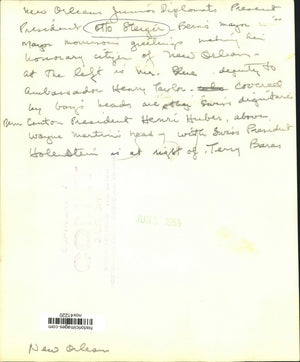 New Orleans Junior Diplomats Present
President Otto Steiger Bern's mayor in
Mayor Morrison's greetings making him
honorary citizen of New Orleans.
At the left is Mr. Blue, deputy to
Ambassador Henry Taylor. Covered
by boy's heads are other Swiss dignitaries
Bern Canton President Henri Huber, above
Wayne Martin's head, with Swiss President
Holenstein is at right of Terry Baras
JUN 1955
historicimages.com
New Orleans